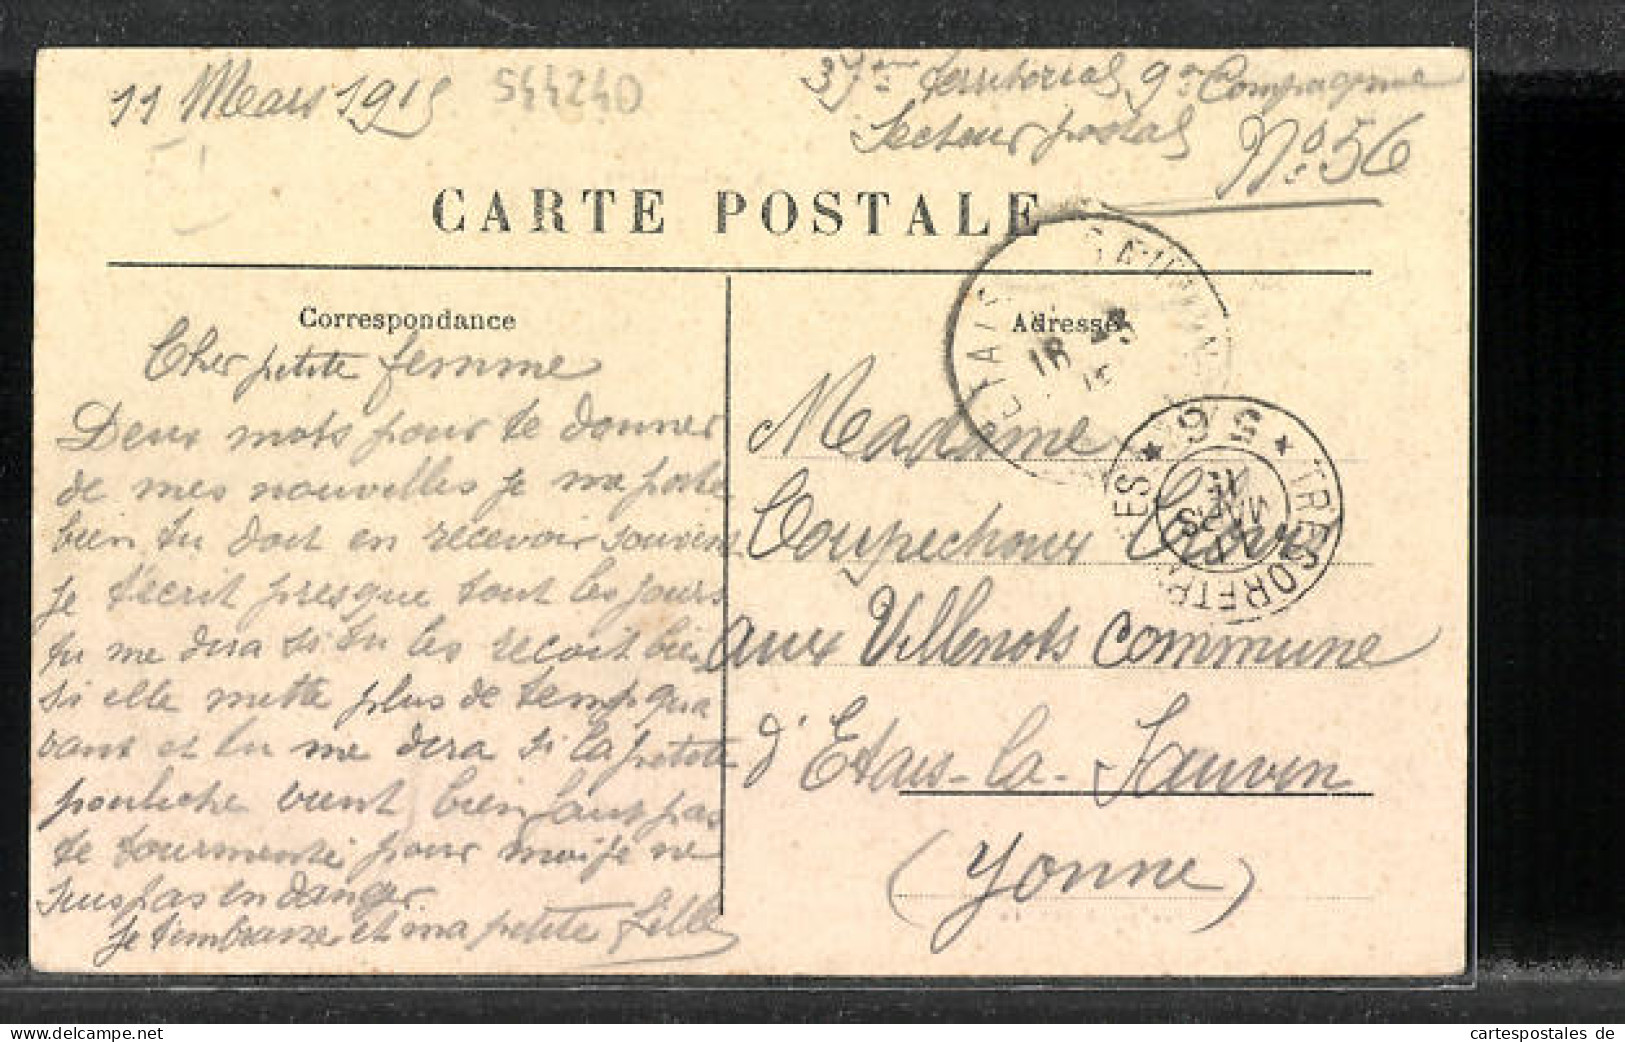 11 Mars 1915
544240
37ème territorial, 9e Compagnie
Secteur postal
No. 56
CARTE POSTALE
Correspondance
Cher petite femme
Deux mots pour te donner
de mes nouvelles je me porte
bien tu doit en recevoir souvent
je t'ecrit presque tout les jours
tu me dira si tu les recoit bien
si elle mette plus de temp qua
vant et tu me dira si la petite
pouliche vient bien faut pas
te tourmenté pour moi je ne
suis pas en danger
Je t'embrasse et ma petite fille
Adresse
Madame
Coupechoux
aux Villenots Commune
d'Etais-la-Sauvin
(Yonne)
ETAIS
18
15
TRESOR ET POSTES
* 56 *
MARS
15
cartespostales de